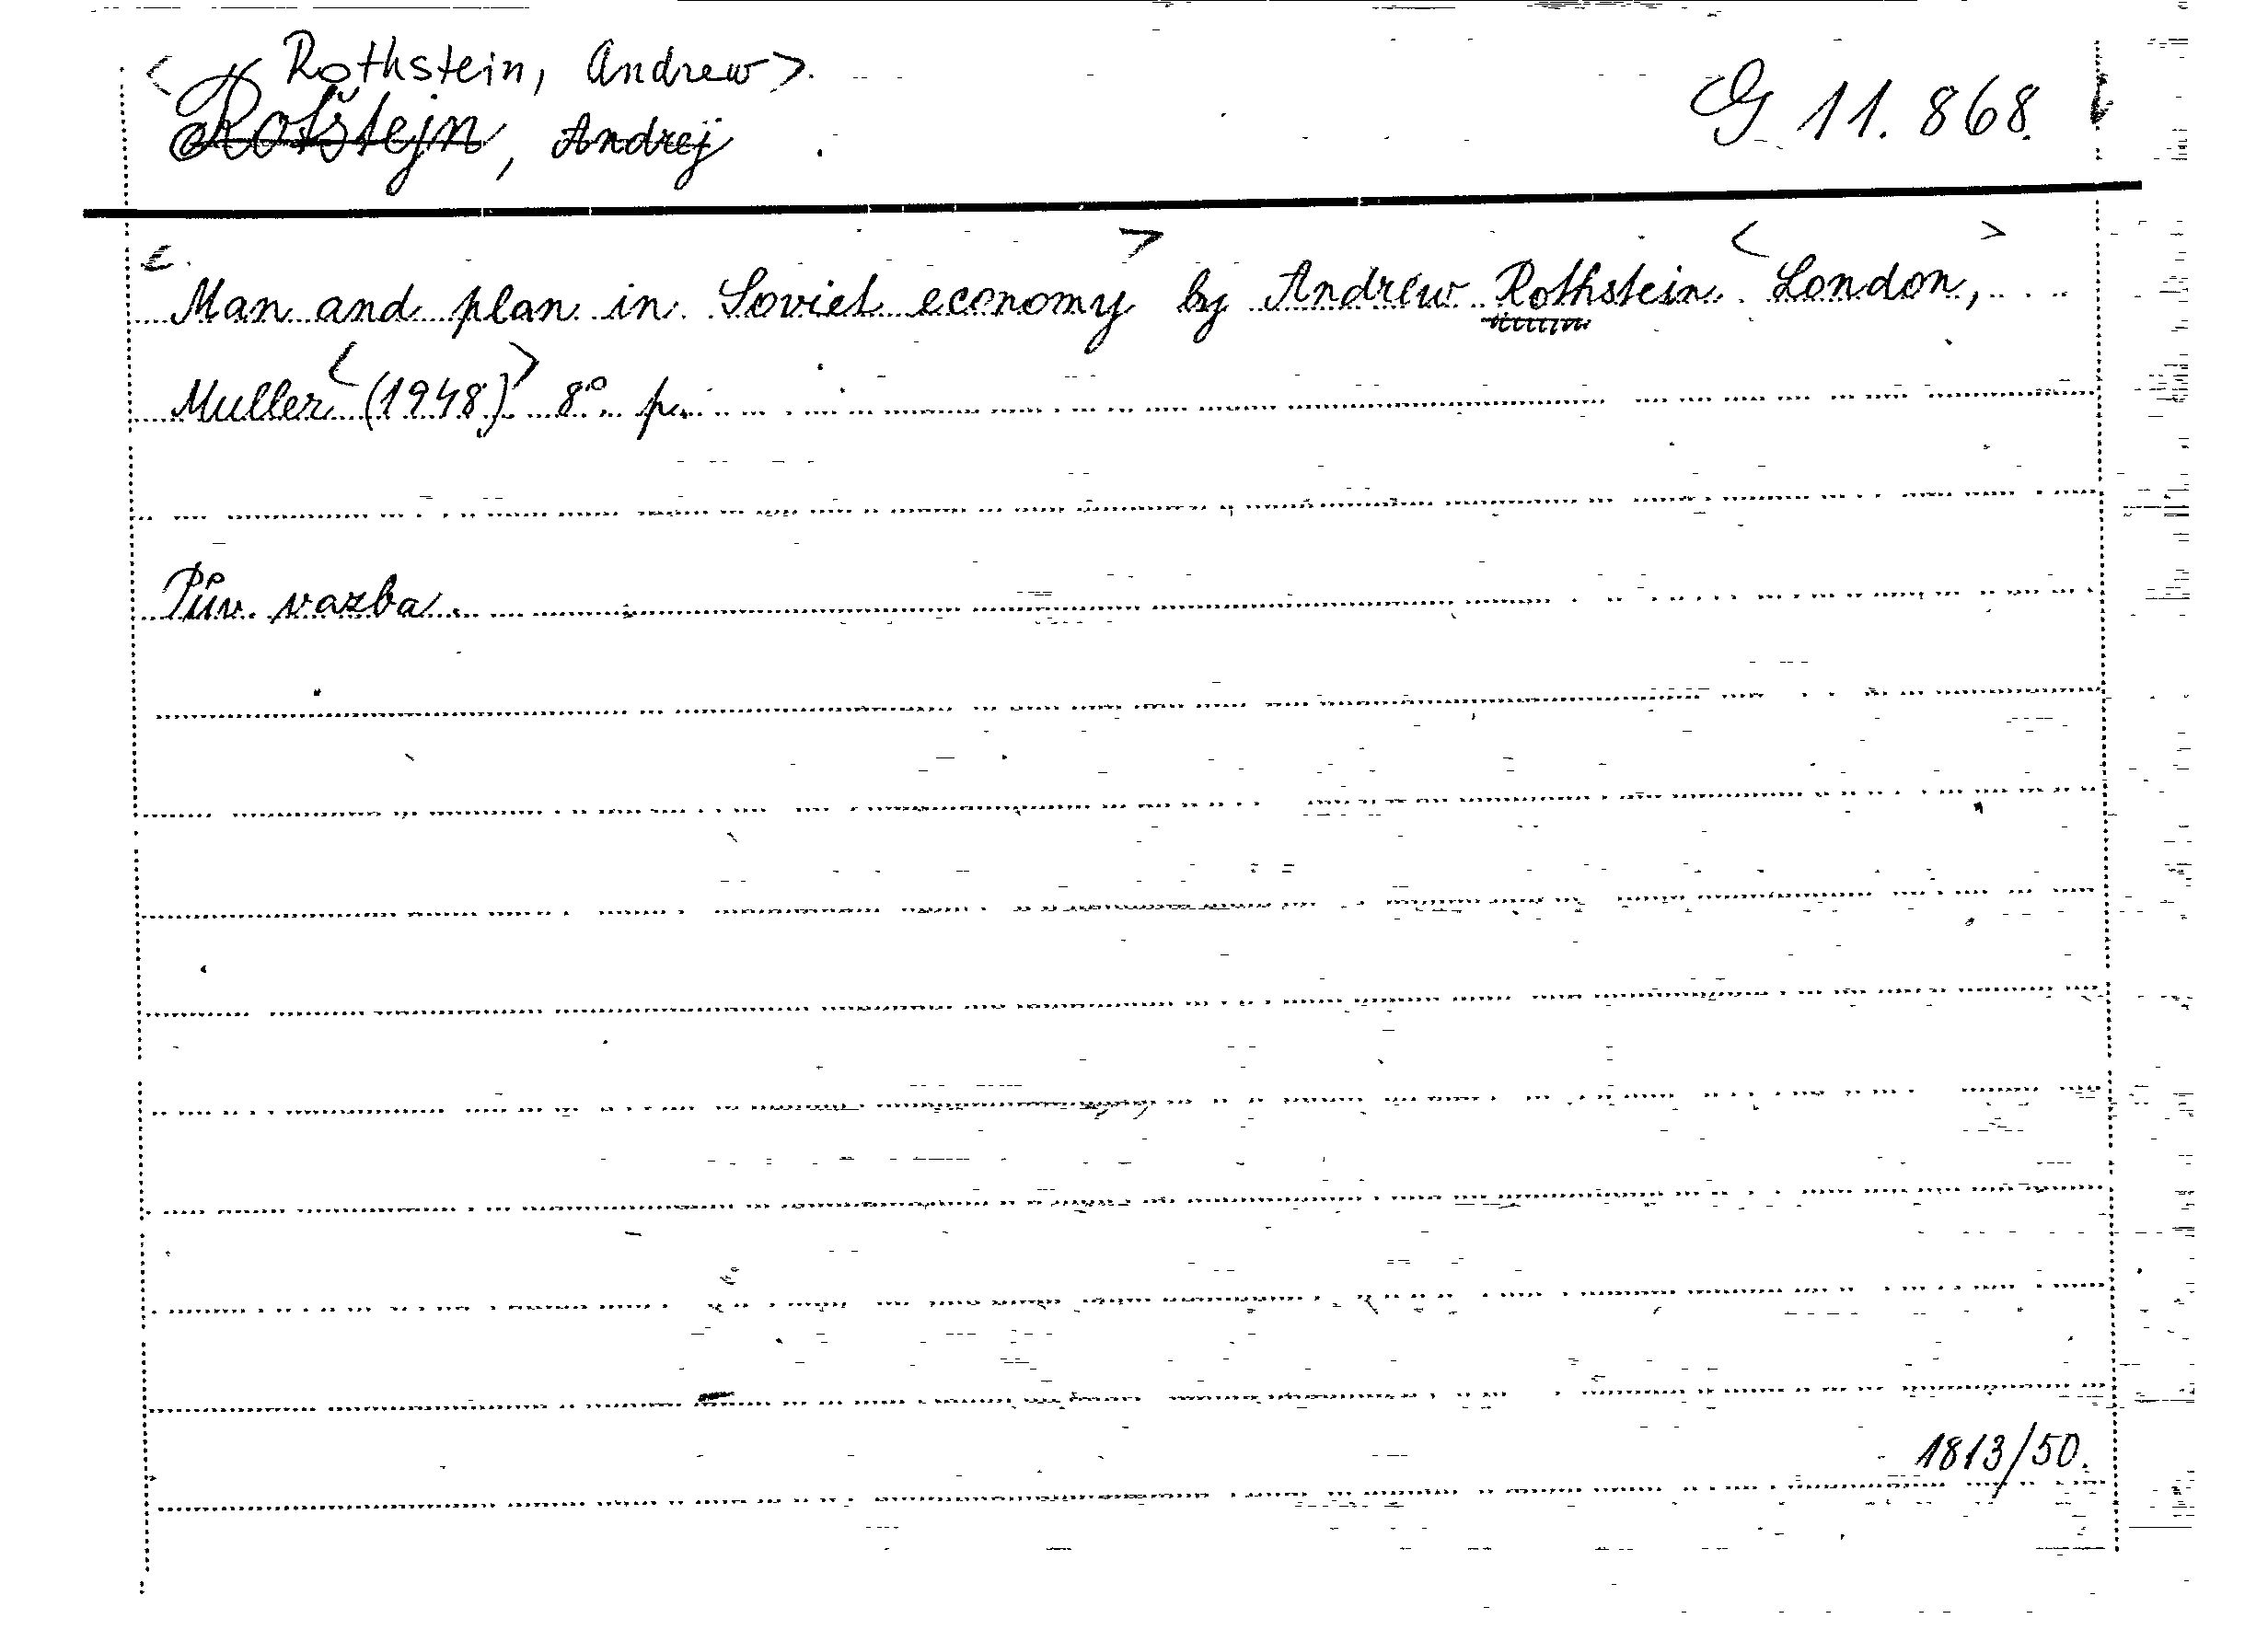 < Rothstein, Andrew >
Rotštejn, Andrej
G 11.868
< Man and plan in Soviet economy > by Andrew Rothstein. < London, >
Muller < (1948) > 8° p.
Pův. vazba.
1813/50.